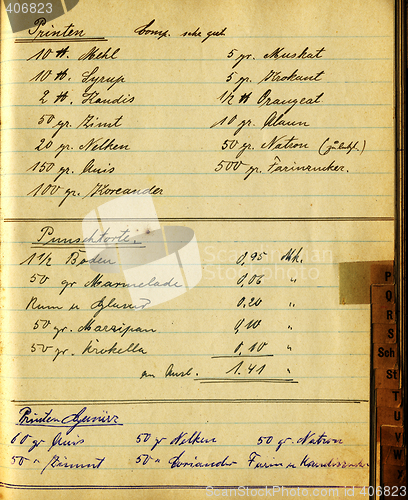 406823
Printen   Comp. sehr gut
10 ℔. Mehl   5 gr. Muskat
10 ℔. Syrup   5 gr. Krokant
2 ℔. Kandis   1/2 ℔ Orangeat
50 gr. Zimt   10 gr. Alaun
20 gr. Nelken   50 gr. Natron
150 gr. Anis   500 gr. Farinzucker.
100 gr. Koreander
Punschtorte.
1 1/2 Boden   0,95 Mk.
50 gr Marmelade   0,06 "
Rum u Glasur   0,20 "
50 gr. Marzipan   0,10 "
50 gr. Krokella   0.10 "
1.41 "
Printen Gewürz
60 gr Anis   50 gr Nelken   50 gr. Natron
50 " Zimmt   50 " Coriander   Farin u
P
O
R
S
Sch
St
T
U
V
W
406823